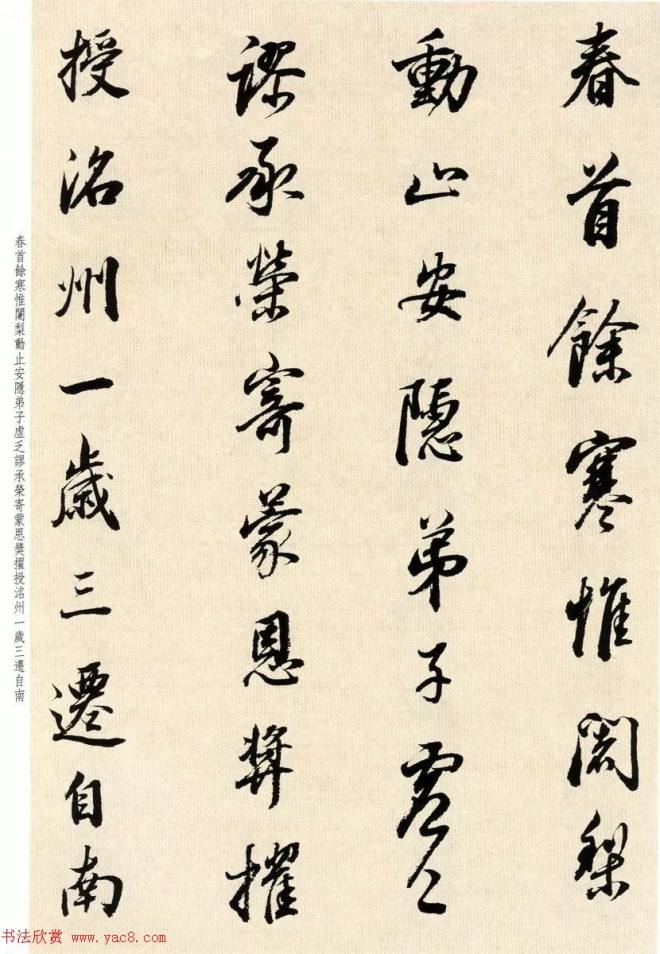 春首餘寒惟闍梨
動止安隱弟子虛乏
謬承榮寄蒙恩奬擢
授洺州一歲三遷自南
春首餘寒惟闍梨動止安隱弟子虛乏謬承榮寄蒙恩奬擢授洺州一歲三遷自南
书法欣赏 www.yac8.com